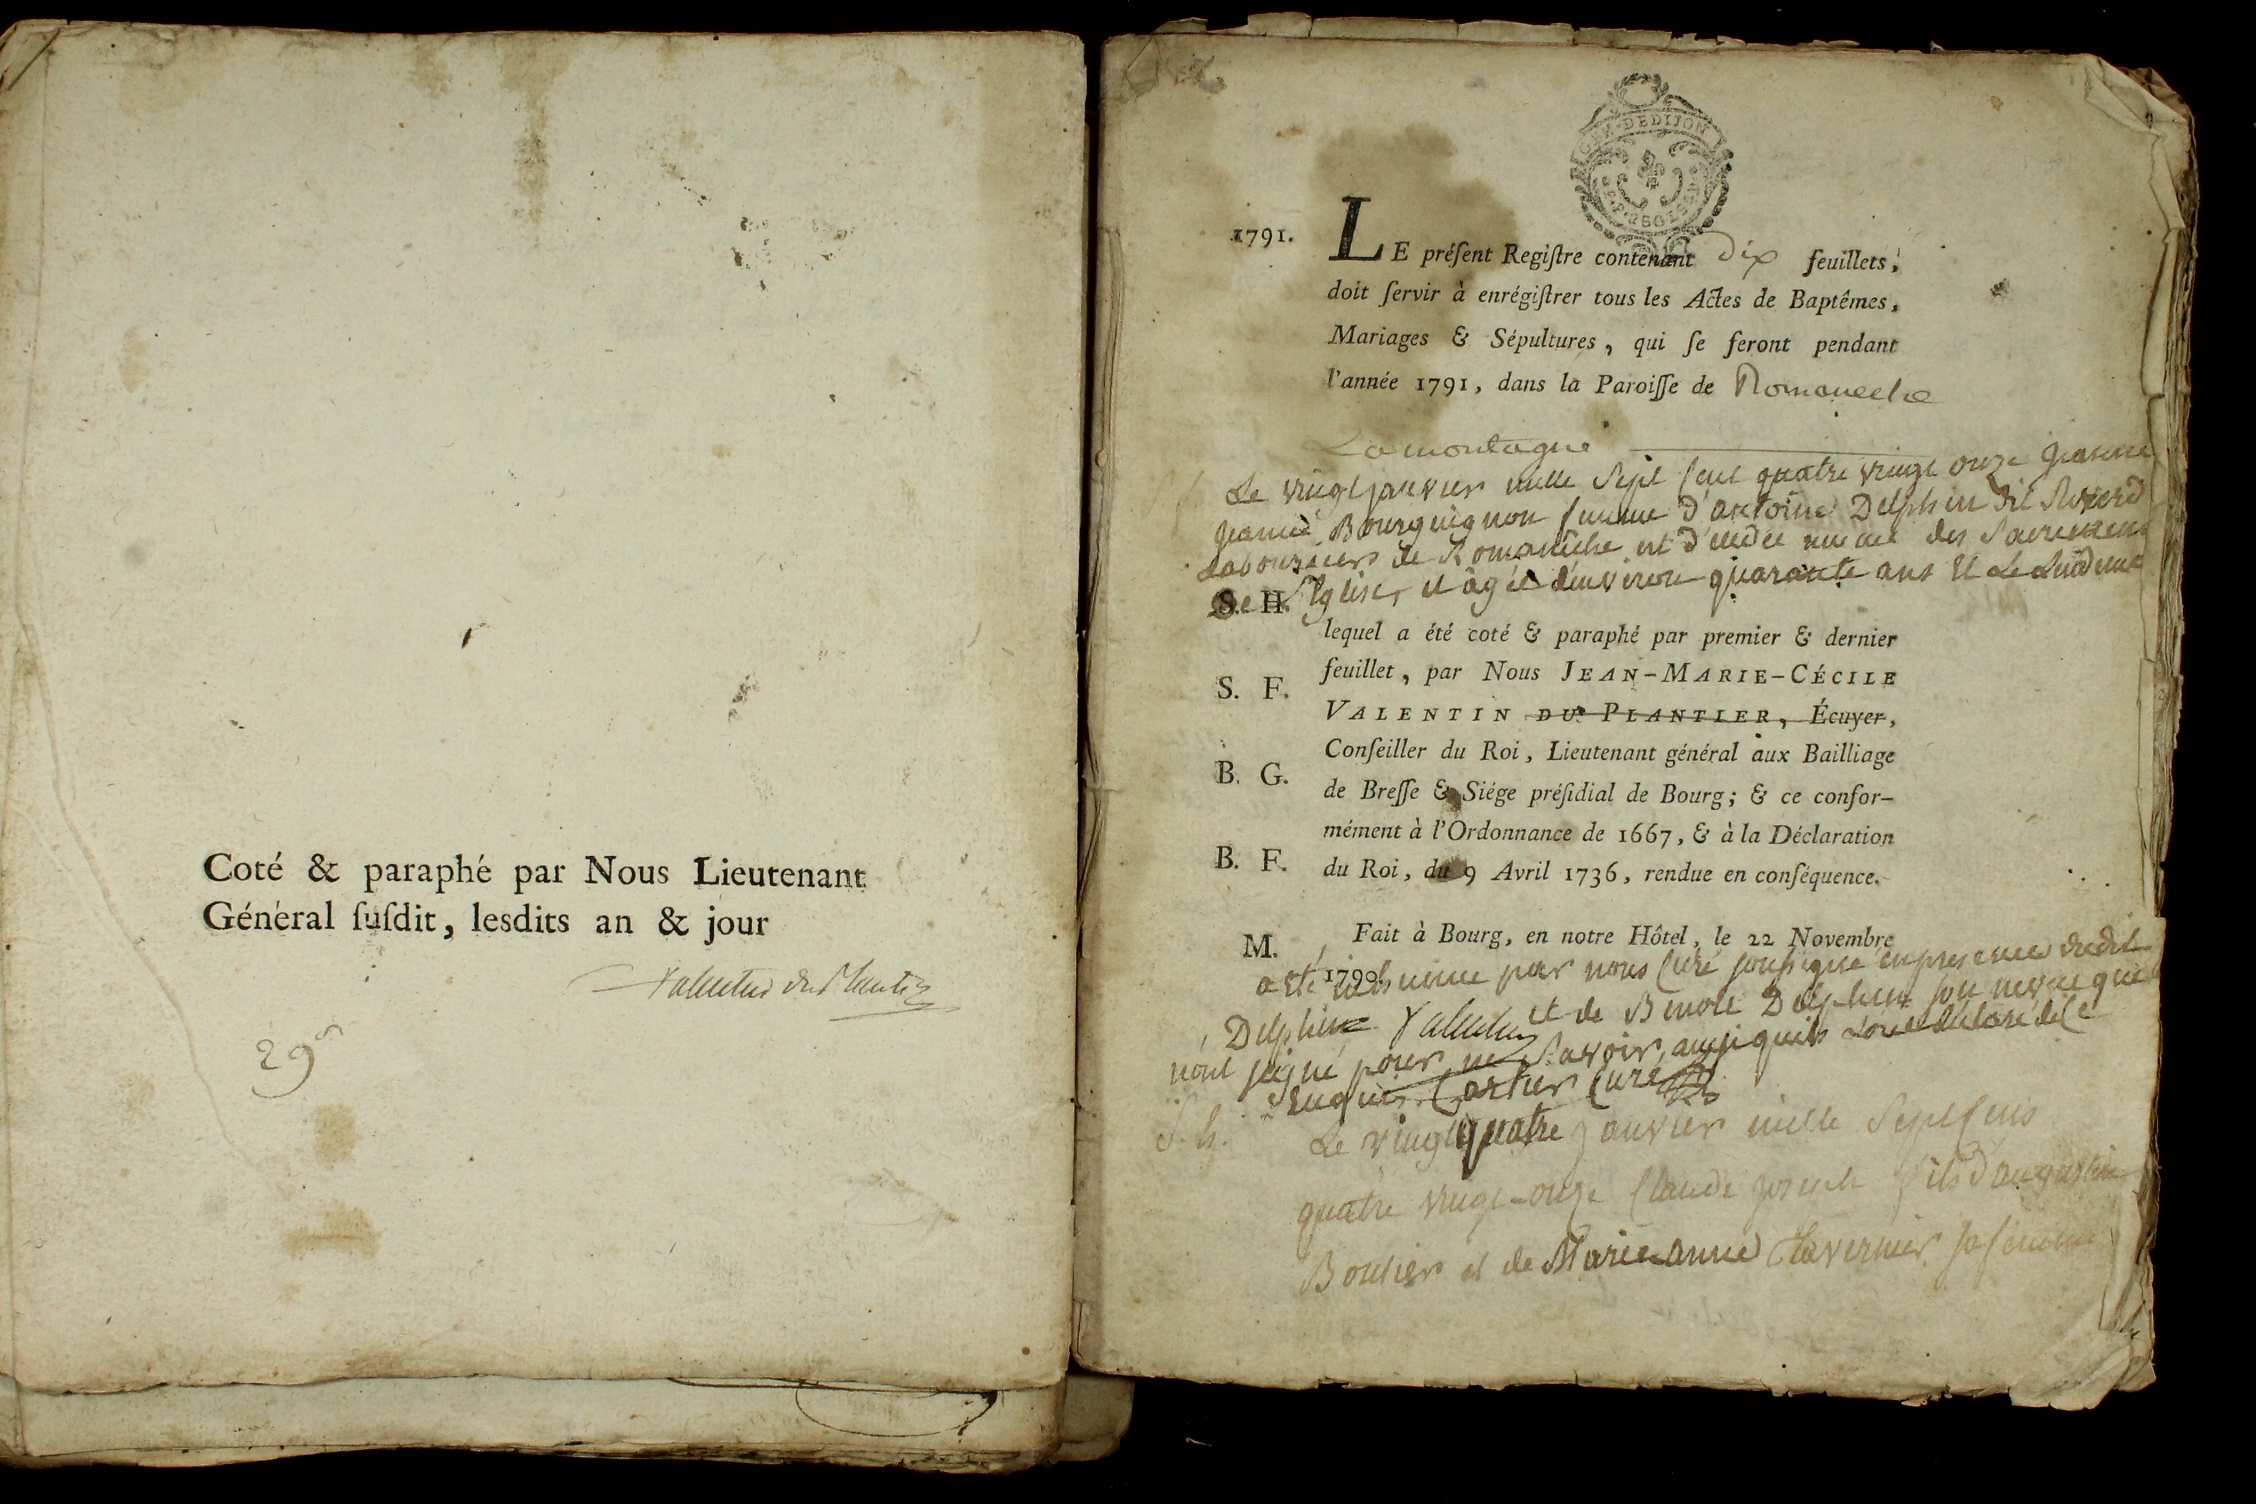 Coté & paraphé par Nous Lieutenant
Général ſuſdit, lesdits an & jour
Valentin du Plantier
29
GEN·DEDIJON
1791.
LE préſent Regiſtre contenant dix feuillets,
doit ſervir à enrégiſtrer tous les Actes de Baptêmes,
Mariages & Sépultures, qui ſe feront pendant
l'année 1791, dans la Paroiſſe de Romaneche
La montagne
Le vingt janvier mille Sept Cent quatre vingt onze jeanne
jeanne Bourguignon femme d'antoine Delphin dit
Laboureur de Romanêche est munie des Sacremens
de L'Eglise, et âgée d'environ quarante ans et Le Lendemain
S. H.
lequel a été coté & paraphé par premier & dernier
feuillet, par Nous JEAN-MARIE-CÉCILE
S. F.
VALENTIN DU PLANTIER, Écuyer,
Conſeiller du Roi, Lieutenant général aux Bailliage
B. G.
de Breſſe & Siége préſidial de Bourg; & ce confor-
mément à l'Ordonnance de 1667, & à la Déclaration
B. F.
du Roi, du 9 Avril 1736, rendue en conſéquence.
M.
Fait à Bourg, en notre Hôtel, le 22 Novembre
1790.
a été inhumée par nous Curé soussigné en presence dudit
Delphin Valentin et de Benoit Delphin son neveu qui
n'ont signé pour ne Savoir, ainsi qu'ils L'ont déclaré de ce
Enquis. Cartier Curé
S. h.
Le vingt quatre janvier mille Sept Cens
quatre vingt-onze Claude joseph fils d'augustin
Boutier et de Marie anne Tavernier sa femme